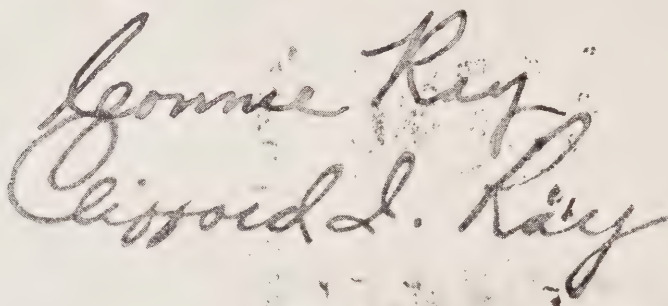 Connie Ray
Clifford I. Ray